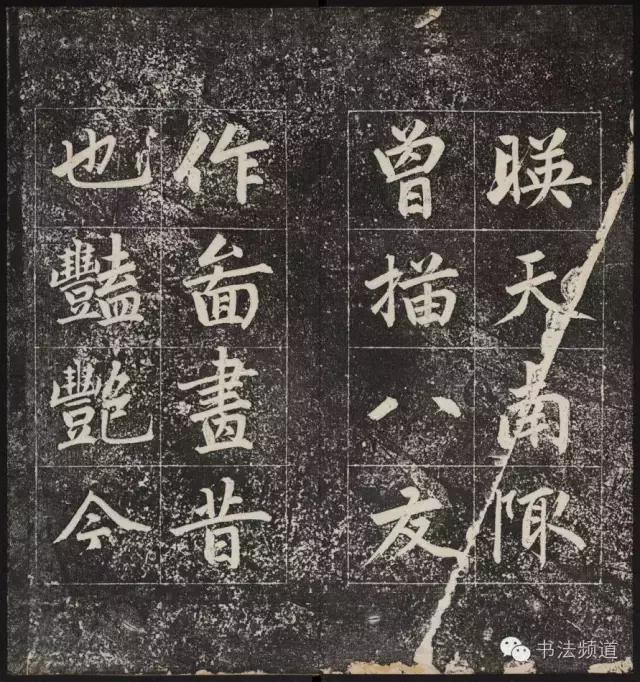 暎天南陬
曾描八友
作啚畫昔
也豔艷今
书法频道